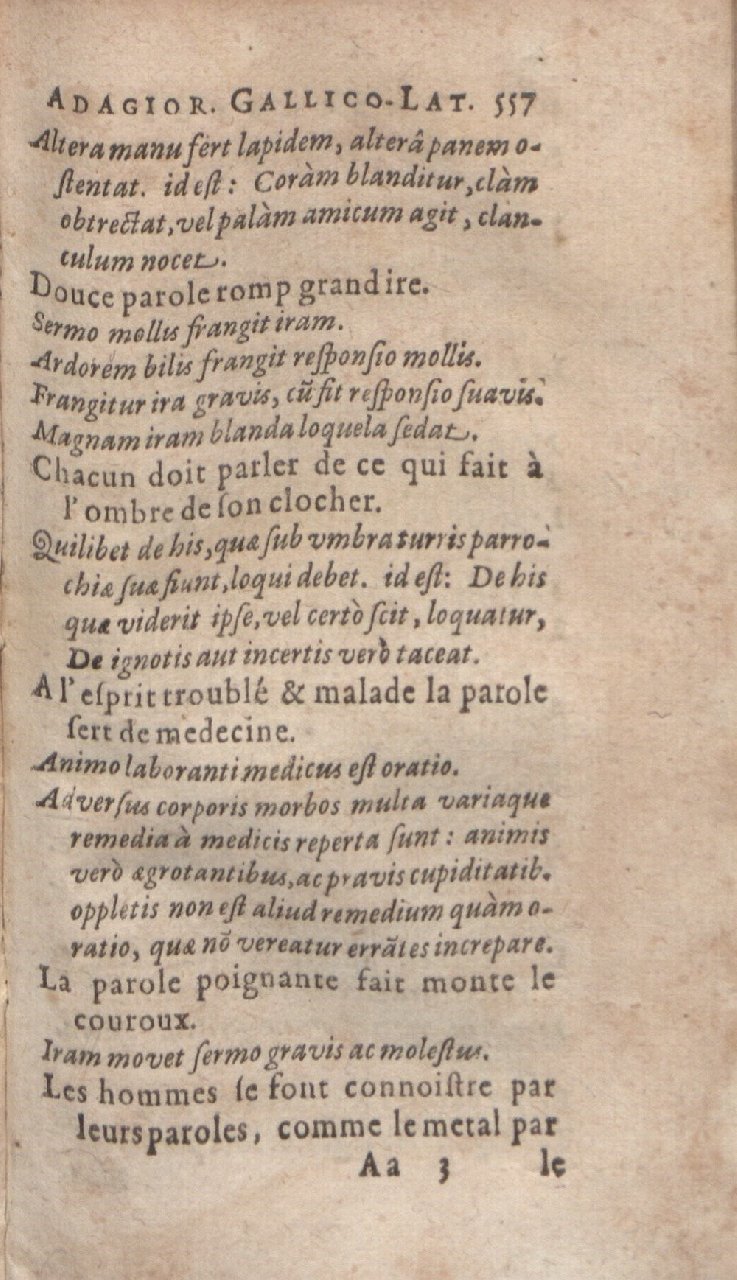 ADAGIOR. GALLICO-LAT. 557
Altera manu fert lapidem, alterâ panem o-
ſtentat. id eſt: Coràm blanditur, clàm
obtrectat, vel palàm amicum agit, clan-
culum nocet.
Douce parole romp grand ire.
Sermo mollis frangit iram.
Ardorem bilis frangit reſponſio mollis.
Frangitur ira gravis, cũ fit reſponſio ſuavis.
Magnam iram blanda loquela ſedat.
Chacun doit parler de ce qui fait à
l'ombre de ſon clocher.
Quilibet de his, quæ ſub vmbra turris parro-
chiæ ſuæ fiunt, loqui debet. id eſt: De his
quæ viderit ipſe, vel certò ſcit, loquatur,
De ignotis aut incertis verò taceat.
A l'eſprit troublé & malade la parole
ſert de medecine.
Animo laboranti medicus eſt oratio.
Adverſus corporis morbos multa variaque
remedia à medicis reperta ſunt: animis
verò ægrotantibus, ac pravis cupiditatib.
oppletis non eſt aliud remedium quàm o-
ratio, quæ nõ vereatur errãtes increpare.
La parole poignante fait monte le
couroux.
Iram movet ſermo gravis ac moleſtus.
Les hommes ſe font connoiſtre par
leurs paroles, comme le metal par
Aa 3 le